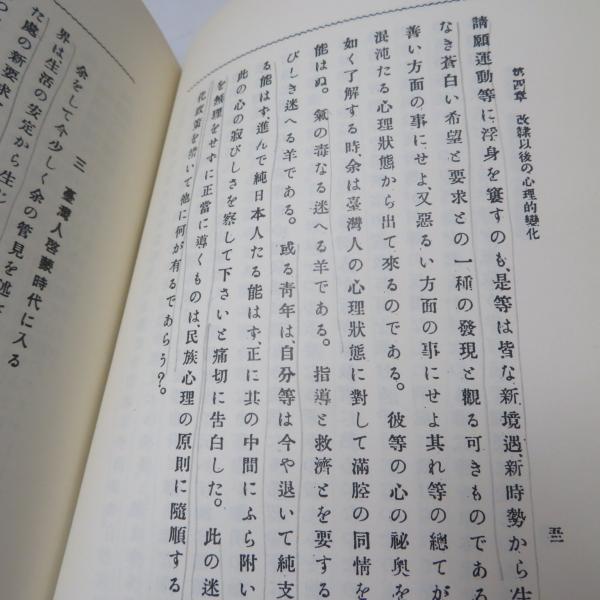 第四章　改隷以後の心理的變化
請願運動等に浮身を窶すのも、是等は皆な新境遇、新時勢から生
なき蒼白い希望と要求との一種の發現と觀る可きものである
善い方面の事にせよ、又惡るい方面の事にせよ其れ等の總てが
混沌たる心理狀態から出て來るのである。彼等の心の祕奧を
如く了解する時、余は臺灣人の心理狀態に對して滿腔の同情を
能はぬ。氣の毒なる迷へる羊である。指導と救濟とを要する
びしき迷へる羊である。或る靑年は、自分等は今や退いて純支
る能はず、進んで純日本人たる能はず、正に其の中間にふら附い
此の心の寂びしさを察して下さいと痛切に告白した。此の迷
を無理をせずに正當に導くものは、民族心理の原則に隨順する
化政策を措いて他に何が有るであらう?。
三　臺灣人啓蒙時代に入る
余をして今少しく余の管見を述
界は生活の安定から生
た處の新要求